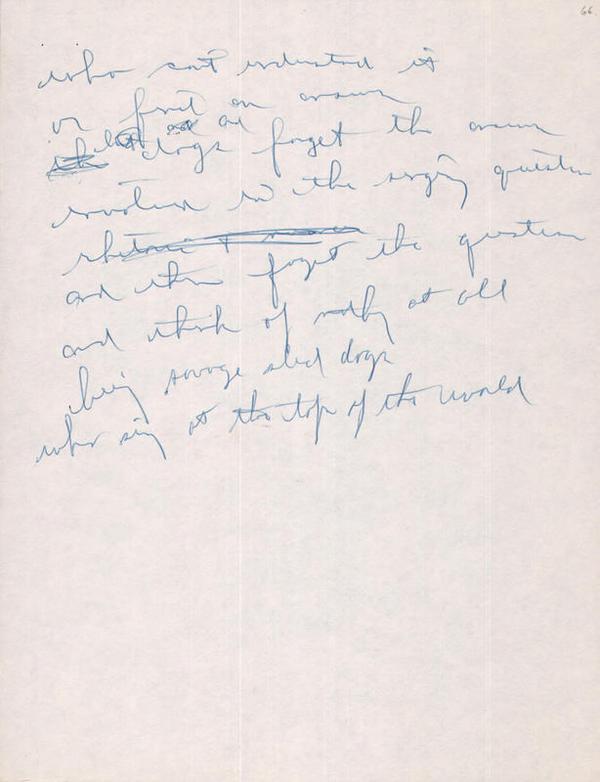 66
who can't understand it
or find an answer
the but as all dogs forget the answer
involved in the singing question
rhetoric &
and then forget the question
and think of nothing at all
being savage sled dogs
who sing at the top of the world